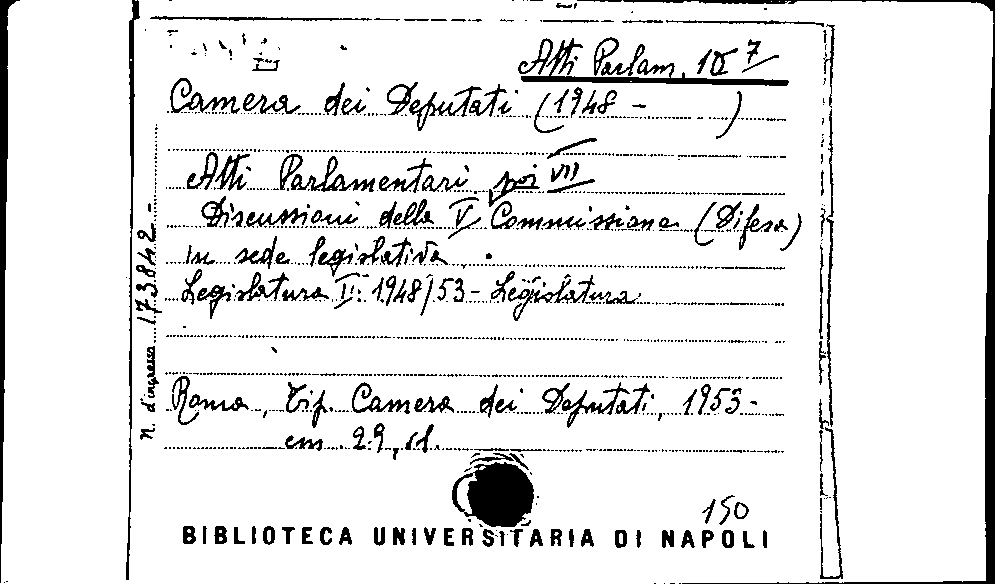 Atti Parlam. IX 7
Camera dei Deputati (1948 - )
Atti Parlamentari poi VII
Discussioni della V Commissione (Difesa)
in sede legislativa.
Legislatura I: 1948/53 - Legislatura
Roma, Tip. Camera dei Deputati, 1953-
cm. 29, sl.
N. d'ingresso 173842-
150
BIBLIOTECA UNIVERSITARIA DI NAPOLI